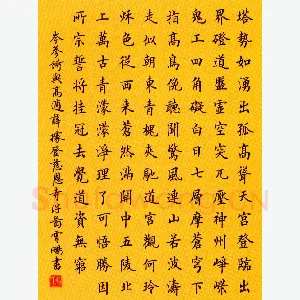 塔勢如湧出孤高聳天宮登臨出世
界磴道盤虛空突兀壓神州崢嶸如
鬼工四角礙白日七層摩蒼穹下窺
指高鳥俯聽聞驚風連山若波濤奔
走似朝東青槐夾馳道宮觀何玲瓏
秋色從西來蒼然滿關中五陵北原
上萬古青濛濛淨理了可悟勝因夙
所宗誓將掛冠去覺道資無窮
岑參詩與高適薛據登慈恩寺浮圖 鵬書